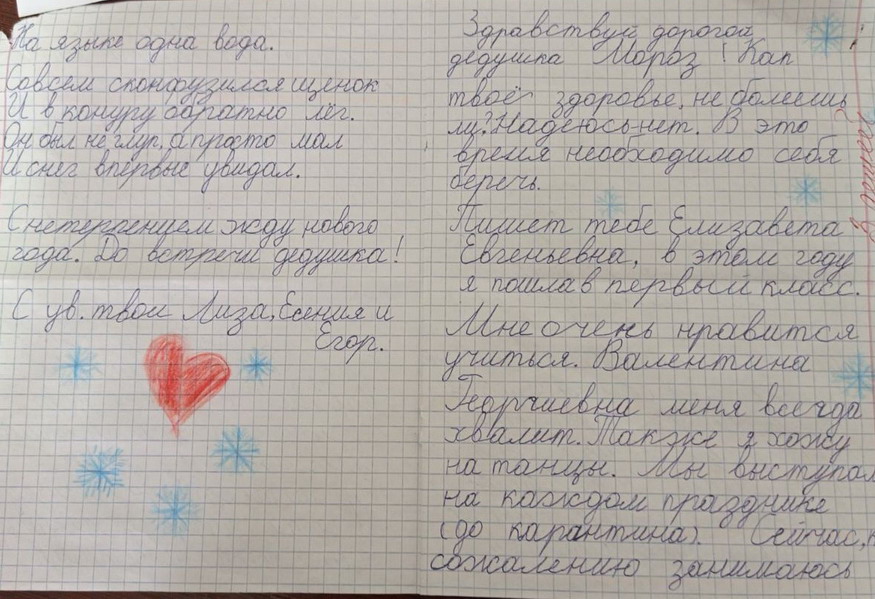 На языке одна вода.
Совсем сконфузился щенок
И в конуру обратно лёг.
Он был не глуп, а просто мал
И снег впервые увидал.
С нетерпением жду нового
года. До встречи дедушка!
С ув. твои Лиза, Есения и
Егор.
Здравствуй дорогой
дедушка Мороз! Как
твоё здоровье, не болеешь
ли? Надеюсь нет. В это
время необходимо себя
беречь.
Пишет тебе Елизавета
Евгеньевна, в этом году
я пошла в первый класс.
Мне очень нравится
учиться. Валентина
Георгиевна меня всегда
хвалит. Также я хожу
на танцы. Мы выступал
на каждом празднике
(до карантина). Сейчас, к
сожалению занимаюсь